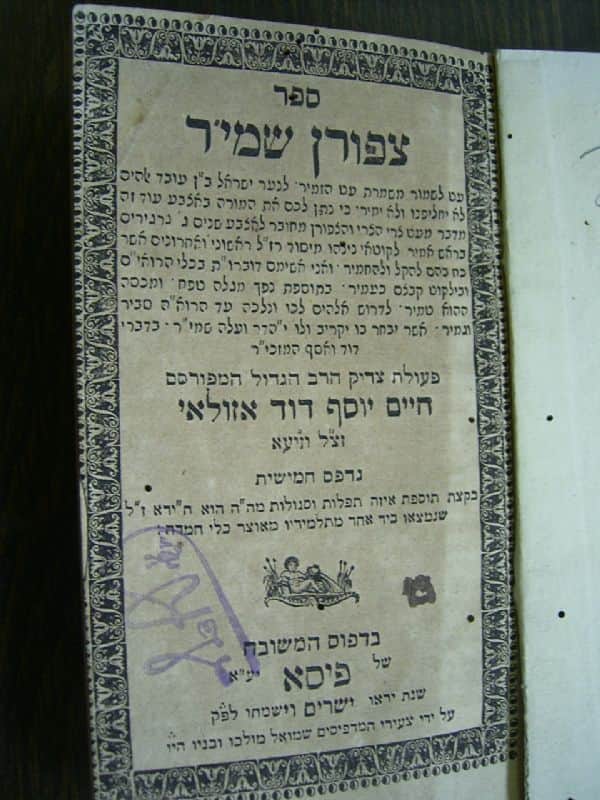 ספר
צפורן שמי״ר
עט לשמור משמרת עט הזמיר · לנער ישראל ב״ן עובד אלהים
לא יחליפנו ולא ימיר · כי נתן לכם את המורה באצבע עוד זה
מדבר מעט צרי הצרי והצפורן מחובר לאצבע שנים ג׳ גרגירים
בראש אמיר · לקוטאי נינהו מיסוד רז״ל ראשוני ואחרונים אשר
כח בהם להקל ולהחמיר · ואני אשימם דוברו״ת בכלי הרואי״ם
ובילקוט קבצם כעמיר · בתוספת נפך מגלה טפח · ומכסה
ההוא טמיר · לדרוש אלהים לכו ונלכה עד הרוא״ה סביר
וגמיר · אשר יבחר בו יקריב ולו י״הדר ועלה שמי״ר · כדברי
דוד ואסף המזכי״ר
פעולת צדיק הרב הגדול המפורסם
חיים יוסף דוד אזולאי
זצ״ל וזיעא
נדפס חמישית
בקצת תוספת איזה תפלות וסגולות מה״ה הוא ח״ידא ז״ל
שנמצאו ביד אחד מתלמידיו מאוצר כלי חמדה :
בדפוס המשובח
של פיסא יע״א
שנת יראו ישרים וישמחו לפ״ק
על ידי צעירי המדפיסים שמואל מולכו ובניו הי״ו